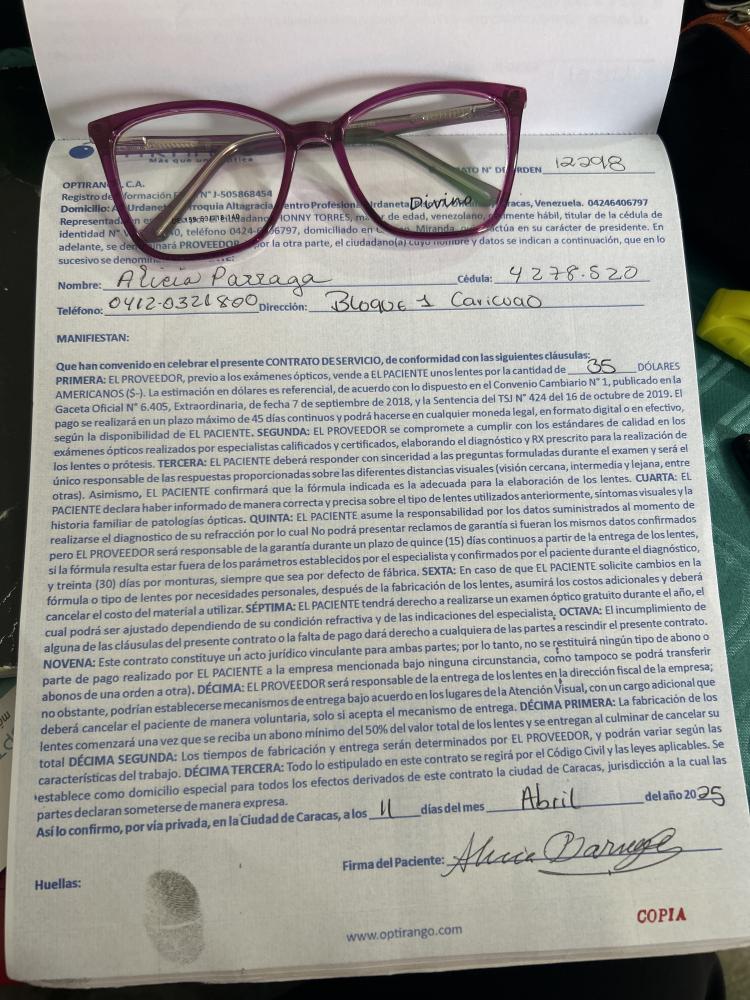 Más que una óptica
ATO N° DE ORDEN 12298
OPTIRANGO, C.A.
Registro de Información N° J-505868454
Domicilio: Urdaneta Parroquia Altagracia Centro Profesional Urdaneta Caracas, Venezuela. 04246406797
Divino
Representada en JONNY TORRES, mayor de edad, venezolano, hábil, titular de la cédula de
identidad N° V teléfono 0424-6406797, domiciliado en Miranda, actúa en su carácter de presidente. En
adelante, se denominará PROVEEDOR por la otra parte, el ciudadano(a) cuyo nombre y datos se indican a continuación, que en lo
sucesivo se denominará
Nombre: Alicia Parraga Cédula: 4278.520
Teléfono: 0412-0321800 Dirección: Bloque 1 Caricuao
MANIFIESTAN:
Que han convenido en celebrar el presente CONTRATO DE SERVICIO, de conformidad con las siguientes cláusulas:
PRIMERA: EL PROVEEDOR, previo a los exámenes ópticos, vende a EL PACIENTE unos lentes por la cantidad de 35 DÓLARES
AMERICANOS ($-). La estimación en dólares es referencial, de acuerdo con lo dispuesto en el Convenio Cambiario N° 1, publicado en la
Gaceta Oficial N° 6.405, Extraordinaria, de fecha 7 de septiembre de 2018, y la Sentencia del TSJ N° 424 del 16 de octubre de 2019. El
pago se realizará en un plazo máximo de 45 días continuos y podrá hacerse en cualquier moneda legal, en formato digital o en efectivo,
según la disponibilidad de EL PACIENTE. SEGUNDA: EL PROVEEDOR se compromete a cumplir con los estándares de calidad en los
exámenes ópticos realizados por especialistas calificados y certificados, elaborando el diagnóstico y RX prescrito para la realización de
los lentes o prótesis. TERCERA: EL PACIENTE deberá responder con sinceridad a las preguntas formuladas durante el examen y será el
único responsable de las respuestas proporcionadas sobre las diferentes distancias visuales (visión cercana, intermedia y lejana, entre
otras). Asimismo, EL PACIENTE confirmará que la fórmula indicada es la adecuada para la elaboración de los lentes. CUARTA: EL
PACIENTE declara haber informado de manera correcta y precisa sobre el tipo de lentes utilizados anteriormente, síntomas visuales y la
historia familiar de patologías ópticas. QUINTA: EL PACIENTE asume la responsabilidad por los datos suministrados al momento de
realizarse el diagnostico de su refracción por lo cual No podrá presentar reclamos de garantía si fueran los mismos datos confirmados
pero EL PROVEEDOR será responsable de la garantía durante un plazo de quince (15) días continuos a partir de la entrega de los lentes,
si la fórmula resulta estar fuera de los parámetros establecidos por el especialista y confirmados por el paciente durante el diagnóstico,
y treinta (30) días por monturas, siempre que sea por defecto de fábrica. SEXTA: En caso de que EL PACIENTE solicite cambios en la
fórmula o tipo de lentes por necesidades personales, después de la fabricación de los lentes, asumirá los costos adicionales y deberá
cancelar el costo del material a utilizar. SÉPTIMA: EL PACIENTE tendrá derecho a realizarse un examen óptico gratuito durante el año, el
cual podrá ser ajustado dependiendo de su condición refractiva y de las indicaciones del especialista. OCTAVA: El incumplimiento de
alguna de las cláusulas del presente contrato o la falta de pago dará derecho a cualquiera de las partes a rescindir el presente contrato.
NOVENA: Este contrato constituye un acto jurídico vinculante para ambas partes; por lo tanto, no se restituirá ningún tipo de abono o
parte de pago realizado por EL PACIENTE a la empresa mencionada bajo ninguna circunstancia, como tampoco se podrá transferir
abonos de una orden a otra). DÉCIMA: EL PROVEEDOR será responsable de la entrega de los lentes en la dirección fiscal de la empresa;
no obstante, podrían establecerse mecanismos de entrega bajo acuerdo en los lugares de la Atención Visual, con un cargo adicional que
deberá cancelar el paciente de manera voluntaria, solo si acepta el mecanismo de entrega. DÉCIMA PRIMERA: La fabricación de los
lentes comenzará una vez que se reciba un abono mínimo del 50% del valor total de los lentes y se entregan al culminar de cancelar su
total DÉCIMA SEGUNDA: Los tiempos de fabricación y entrega serán determinados por EL PROVEEDOR, y podrán variar según las
características del trabajo. DÉCIMA TERCERA: Todo lo estipulado en este contrato se regirá por el Código Civil y las leyes aplicables. Se
establece como domicilio especial para todos los efectos derivados de este contrato la ciudad de Caracas, jurisdicción a la cual las
partes declaran someterse de manera expresa.
Así lo confirmo, por vía privada, en la Ciudad de Caracas, a los 11 días del mes Abril del año 2025
Firma del Paciente: Alicia Parraga
Huellas:
COPIA
www.optirango.com